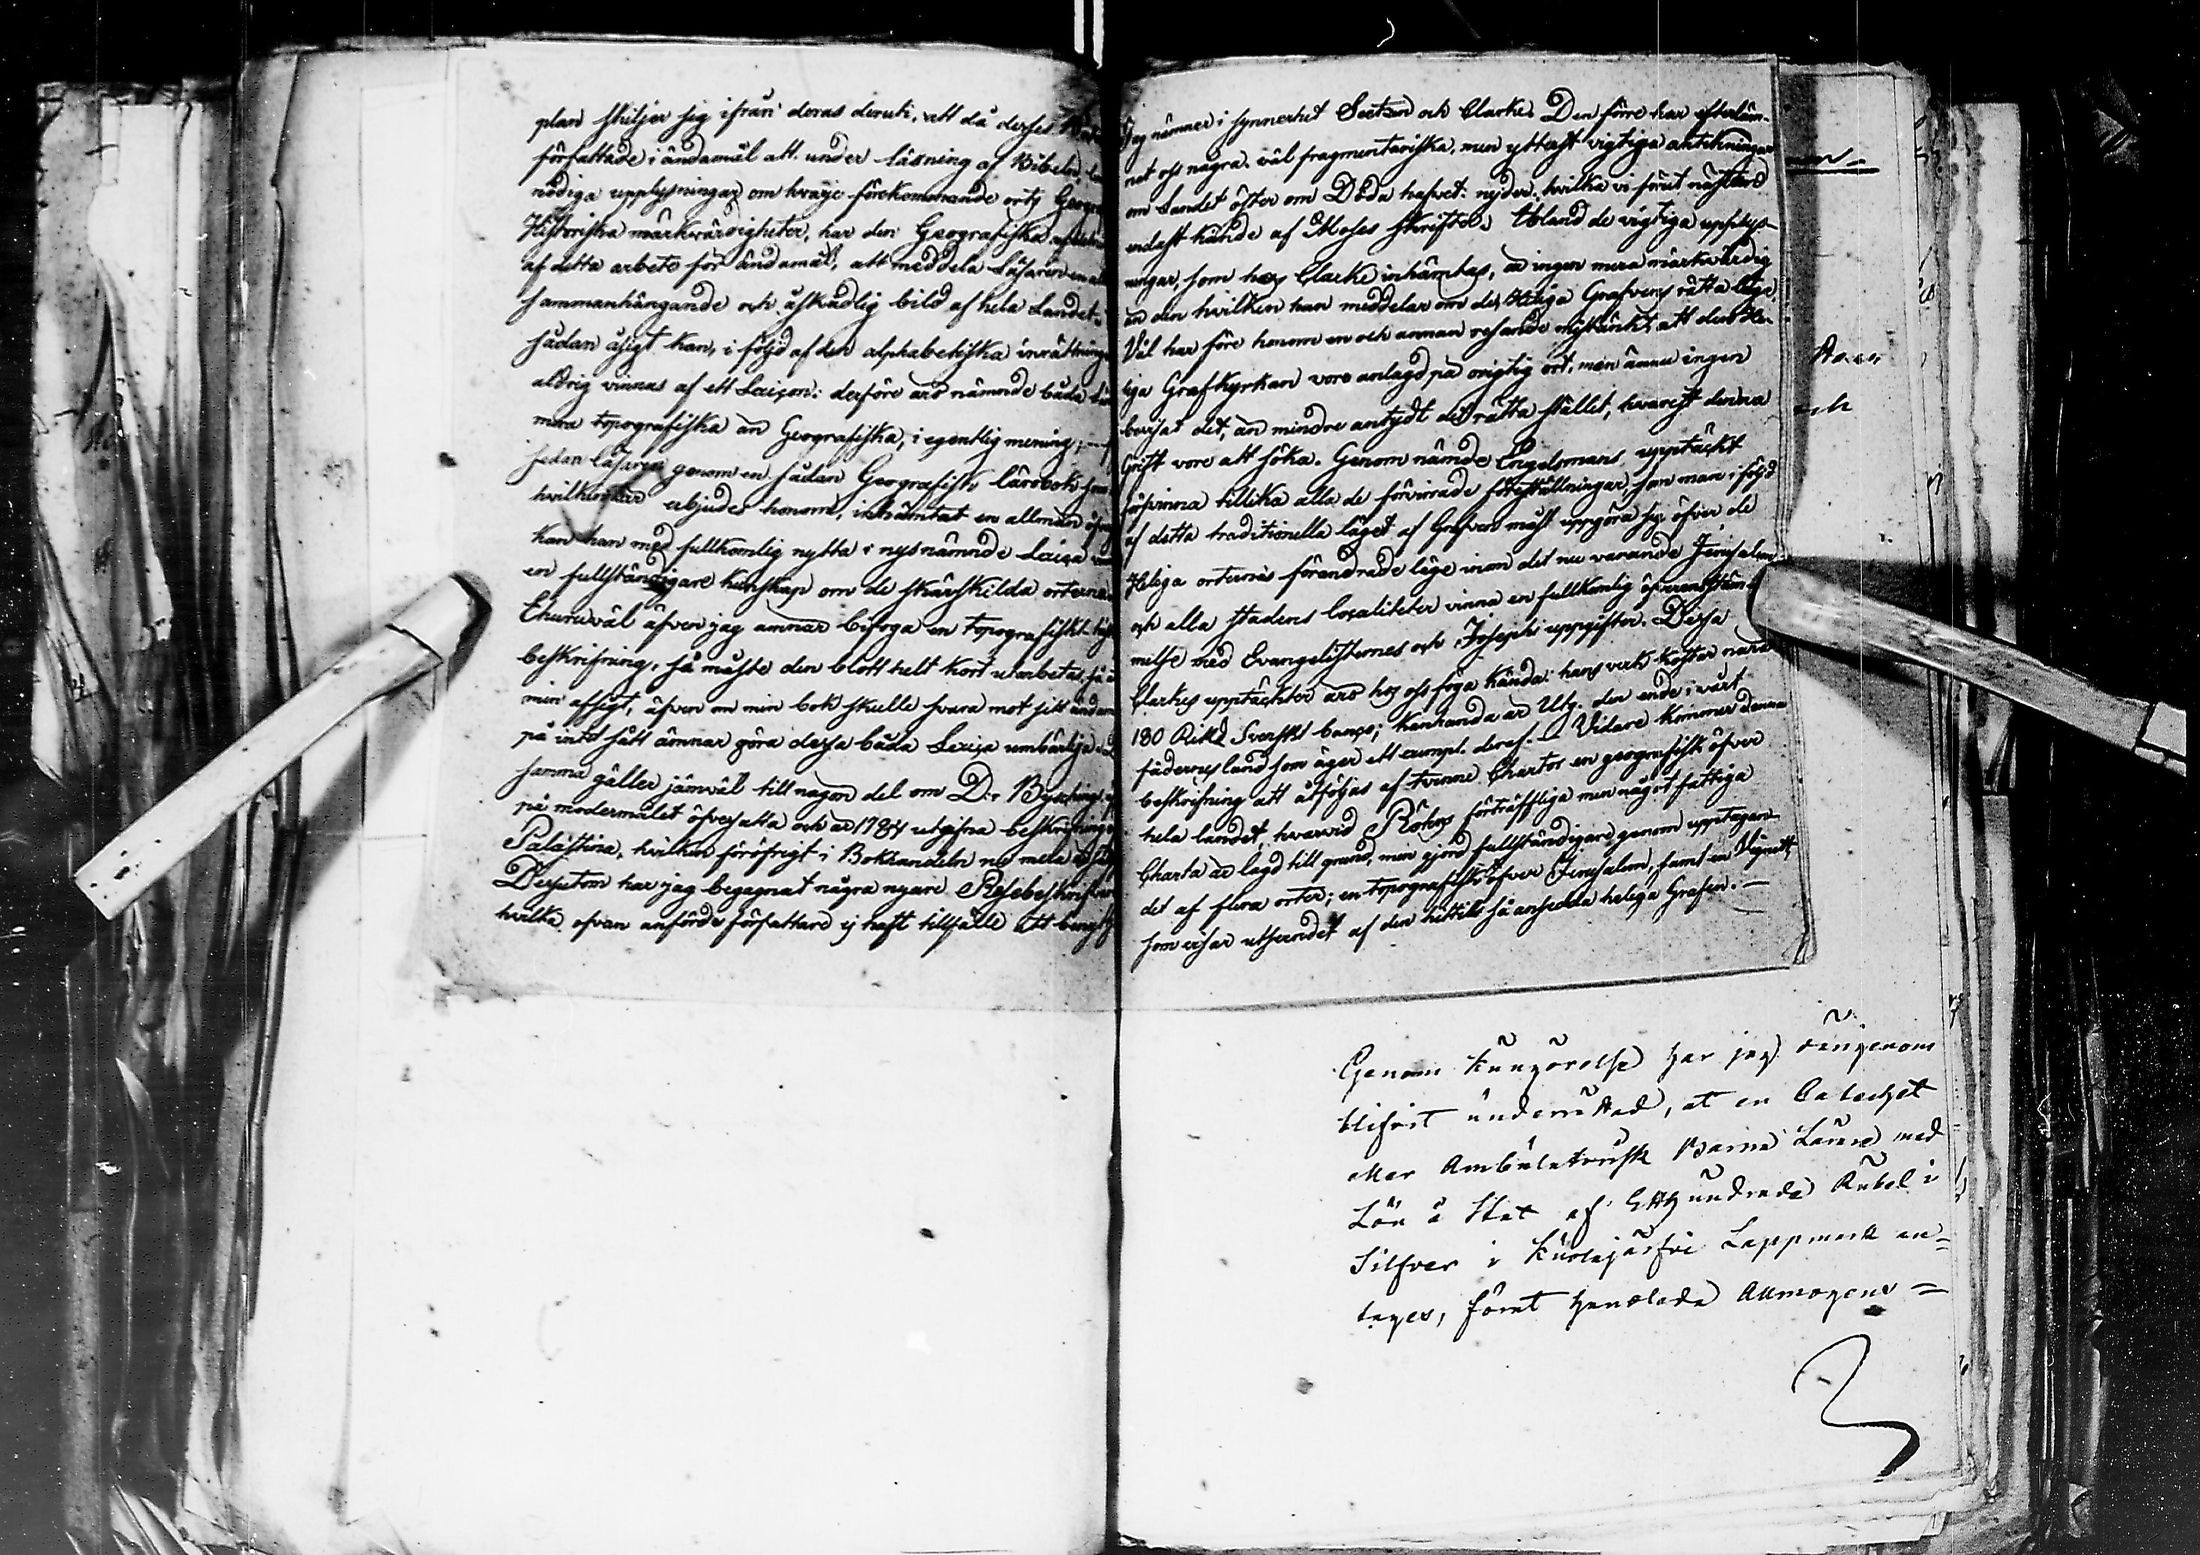 plan skiljer sig ifrån deras deruti, att då dessas
författade i ändamål att under läsning af Bibeln,
nödiga upplysningar om hvarje förekommande orts
Historiska märkvärdigheter, har den Geografiska
af detta arbete för ändamål, att meddela Läsaren en
sammanhängande och åskådlig bild af hela Landet.
sådan åsigt kan, i följd af den alphabetiska inrättningen
aldrig vinnas af ett Lexicon: derföre äro nämnde båda
mera topografiska än Geografiska, i egentlig mening; —
sedan Läsaren genom en sådan Geografisk lärobok som
erbjudes honom, inhämtat en allmän
kan han med fullkomlig nytta i nysnämnde Lexica
en fullständigare kunskap om de särskilda orterna.
Ehuruväl äfven jag ämnar bifoga en topografisk
beskrifning, så måste den blott helt kort utarbetas, så
min afsigt, äfven om min bok skulle svara mot sitt
på intet sätt ämnar göra dessa båda Lexica umbärliga.
samma gäller jämväl till någon del om D:r Byschings
på modersmålet öfversatta och år 1784 utgifna beskrifning
Palästina, hvilken föröfrigt i Bokhandeln ej mera
Dessutom har jag begagnat några nyare Resebeskrifvare
hvilka ofvan anförde författare ej haft tillfälle att
Jag nämner i synnerhet Seetzen och Clarke. Den förre har efterläm-
nat oss några, väl fragmentariska, men yttest vigtiga anteckningar
om Landet öster om Döda hafvet: nejder, hvilka vi förut nästan
endast kände af Moses skrifter. Ibland de vigtiga upplys-
ningar, som hos Clarke inhämtas, är ingen mera märkvärdig
än den hvilken han meddelar om den Heliga Grafvens rätta läge.
Väl har före honom en och annan resande misstänkt, att den He-
liga Grafkyrkan vore anlagd på origtig ort, men ännu ingen
bevisat det, än mindre antydt det rätta stället, hvarest denna
Grift vore att söka. Genom nämde Engelsmans upptäckt
försvinna tillika alla de förvirrade föreställningar, som man i följd
af detta traditionella läget af Grafven måst uppgöra sig öfver de
Heliga orternas förändrade läge inom det nu varande Jerusalem
och alla stadens localiteter vinna en fullkomlig öfverensstäm-
melse med Evangelisternes och Josephi uppgifter. Dessa
Clarkes upptäckter äro hos oss föga kända: hans verk kostar nära
180 Riksd Svenskt banco; kanhända är Utg. den ende i vårt
fädernesland som äger ett exempl. deraf. — Vidare kommer denna
beskrifning att åtföljas af tvenne Chartor en geografisk öfver
hela landet, hvarvid förträffliga men något fattiga
Charta är lagd till grund, men gjord fullständigare genom upptagan-
det af flera orter; en topografisk öfver Jerusalem, samt en Vignett,
som visar utseendet af den hittills så ansedda heliga Grafven. —
Genom Kungörelse har jag
blifvit underrättad, at en Catechet
eller Ambulatorisk Barna Lärare med
Lön å Stat af Etthundrade Rubel i
Silfver i Kuolajärfvi Lappmark an=
tages, förut hanvlada Allmogens =